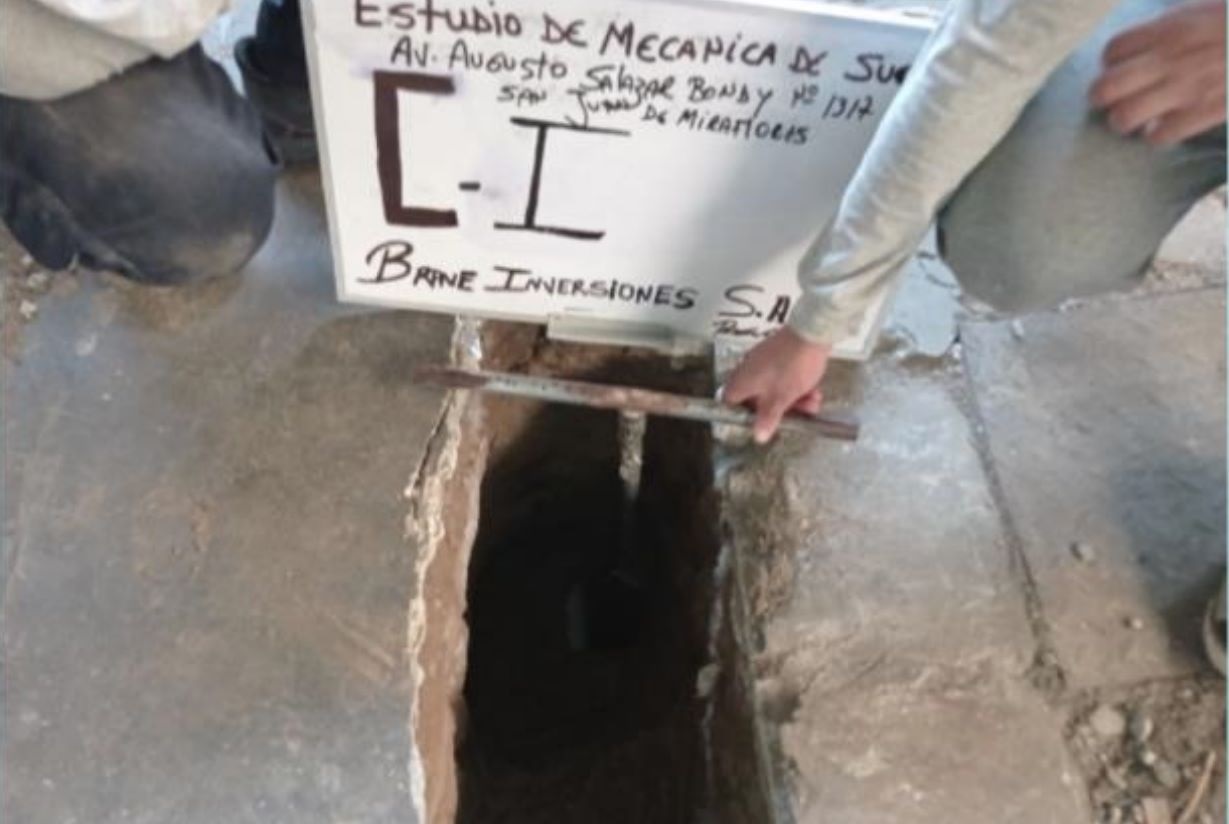 ESTUDIO DE MECANICA DE SUE
AV. AUGUSTO SALAZAR BONDY Nº 1317
SAN JUAN DE MIRAFLORES
C-I
BRINE INVERSIONES S.A